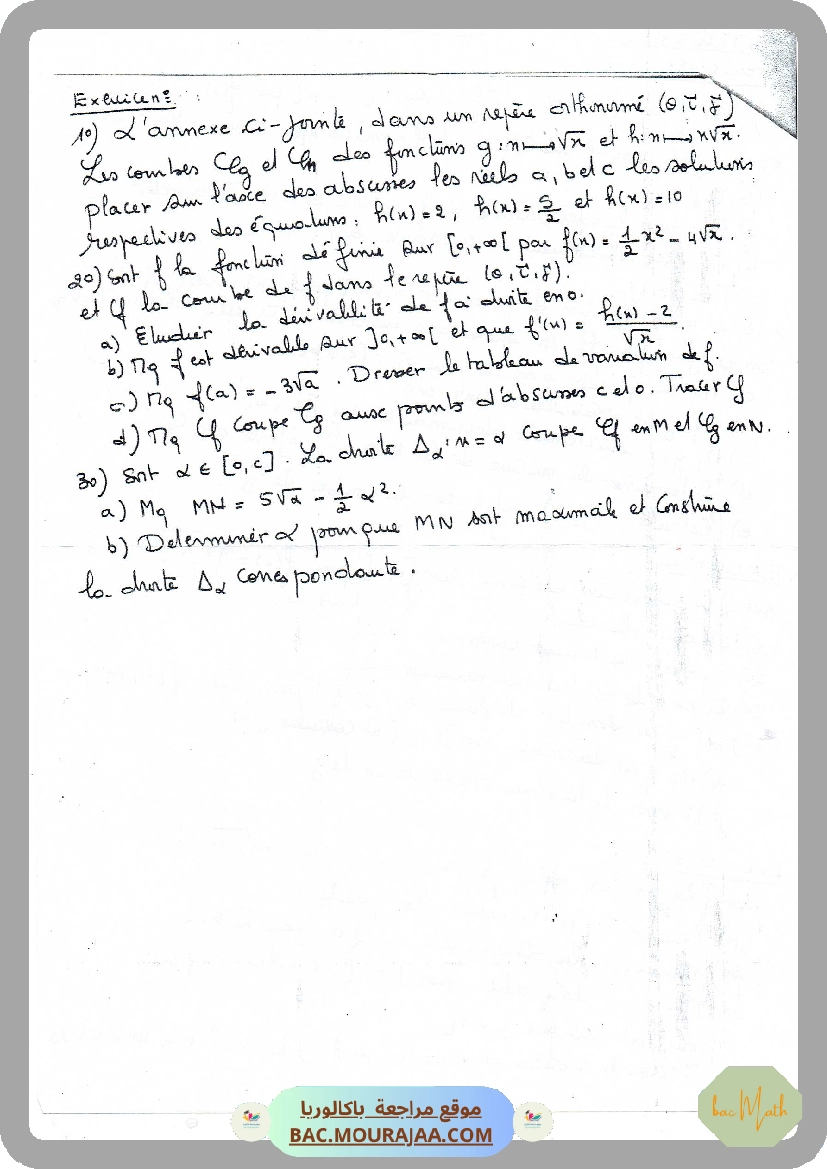 Exercice n°: :
1°) L'annexe ci-jointe, dans un repère orthonormé (O, i⃗, j⃗)
Les courbes Cg et Ch des fonctions g: x ⟼ √x et h: x ⟼ x√x.
placer sur l'axe des abscisses les réels a, b et c les solutions
respectives des équations: h(x) = 2, h(x) = 5/2 et h(x) = 10
2°) Soit f la fonction définie sur [0, +∞[ par f(x) = 1/2 x² - 4√x.
et Cf la courbe de f dans le repère (O, i⃗, j⃗).
a) Etudier la dérivabilité de f à droite en 0.
b) Mq f est dérivable sur ]0, +∞[ et que f'(x) = (h(x) - 2)/√x.
c) Mq f(a) = -3√a. Dresser le tableau de variation de f.
d) Mq Cf coupe Cg aux points d'abscisses c et 0. Tracer Cf
3°) Soit α ∈ [0, c]. La droite Δα: x = α coupe Cf en M et Cg en N.
a) Mq MN = 5√α - 1/2 α².
b) Determiner α pour que MN soit maximale et Construire
la droite Δα correspondante.
موقع مراجعة باكالوريا
BAC.MOURAJAA.COM
bac Math